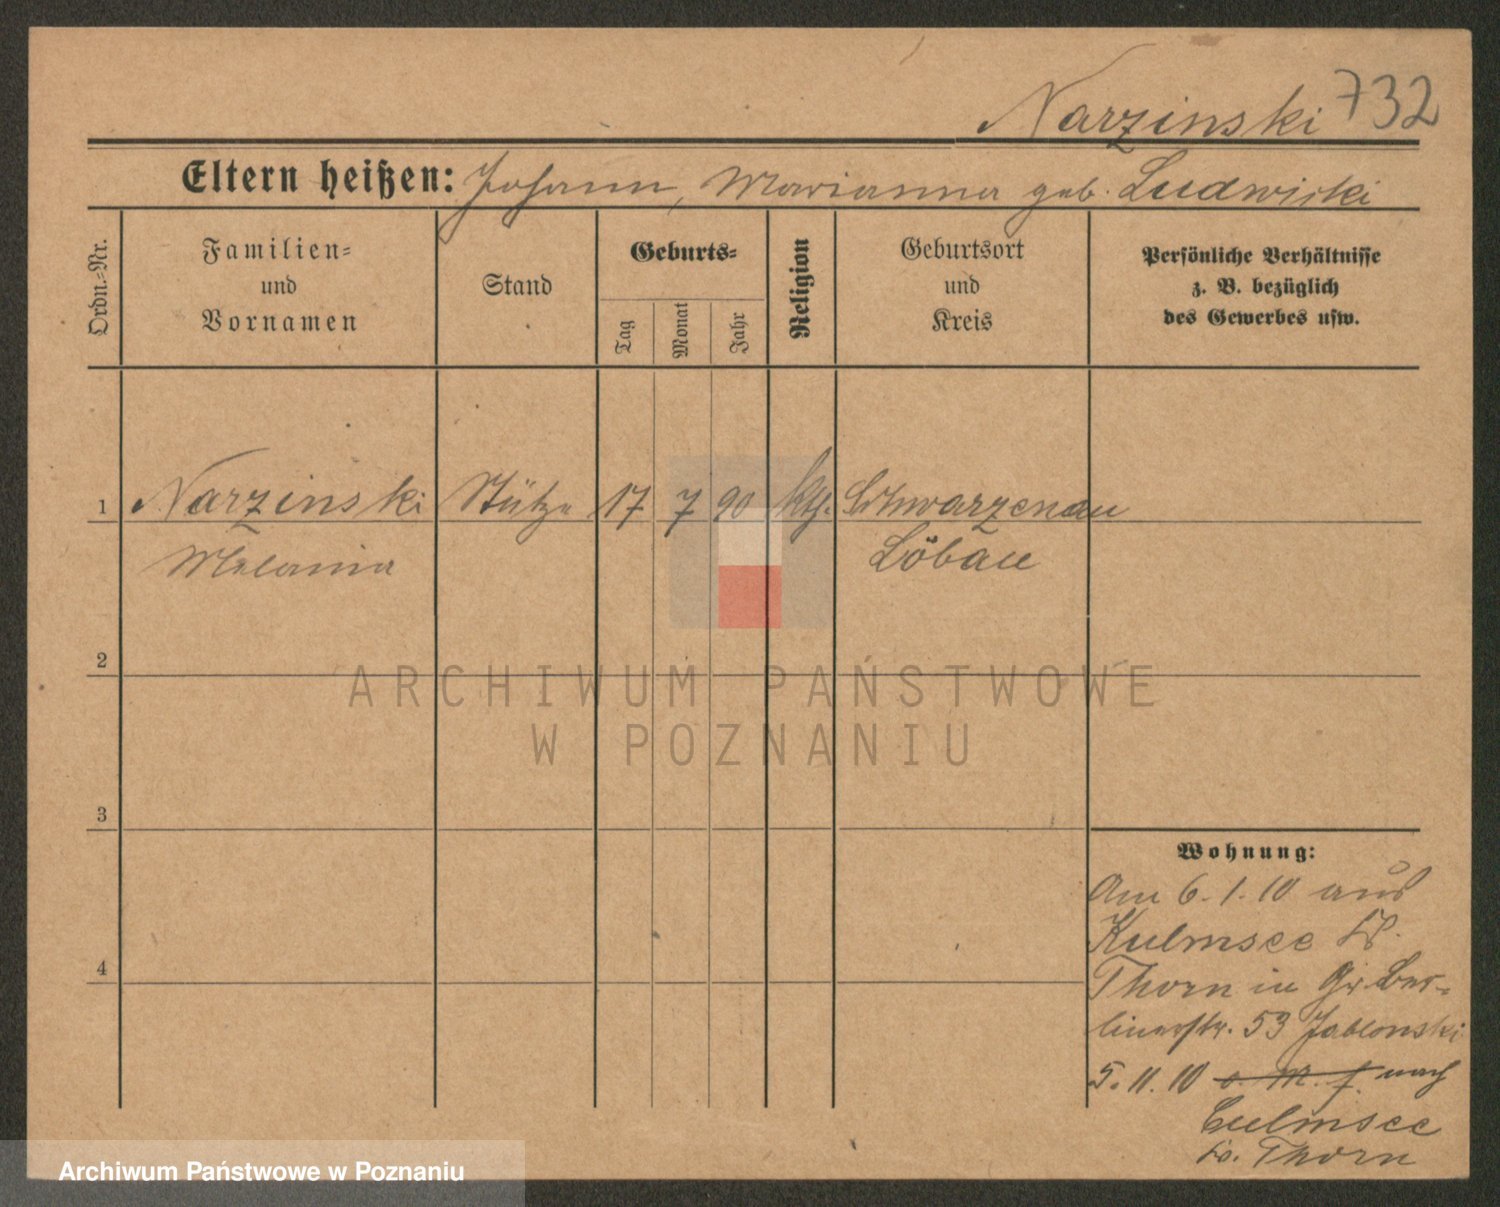 Narzinski 732
Eltern heißen: Johann, Marianna geb. Ludwiski
Ordn.-Nr.
Familien-
und
Vornamen
Stand
Geburts-
Tag
Monat
Jahr
Religion
Geburtsort
und
Kreis
Persönliche Verhältnisse
z. B. bezüglich
des Gewerbes usw.
1 Narzinski Stütze 17 7 90 kth. Schwarzenau
Melania Löbau
2
3
4
Wohnung:
Am 6.1.10 aus
Kulmsee Kr.
Thorn in Gr. Ber-
linerstr. 53 Jablonski
5.11.10 o. M. f. nach
Culmsee
Kr. Thorn
ARCHIWUM PAŃSTWOWE
W POZNANIU
Archiwum Państwowe w Poznaniu